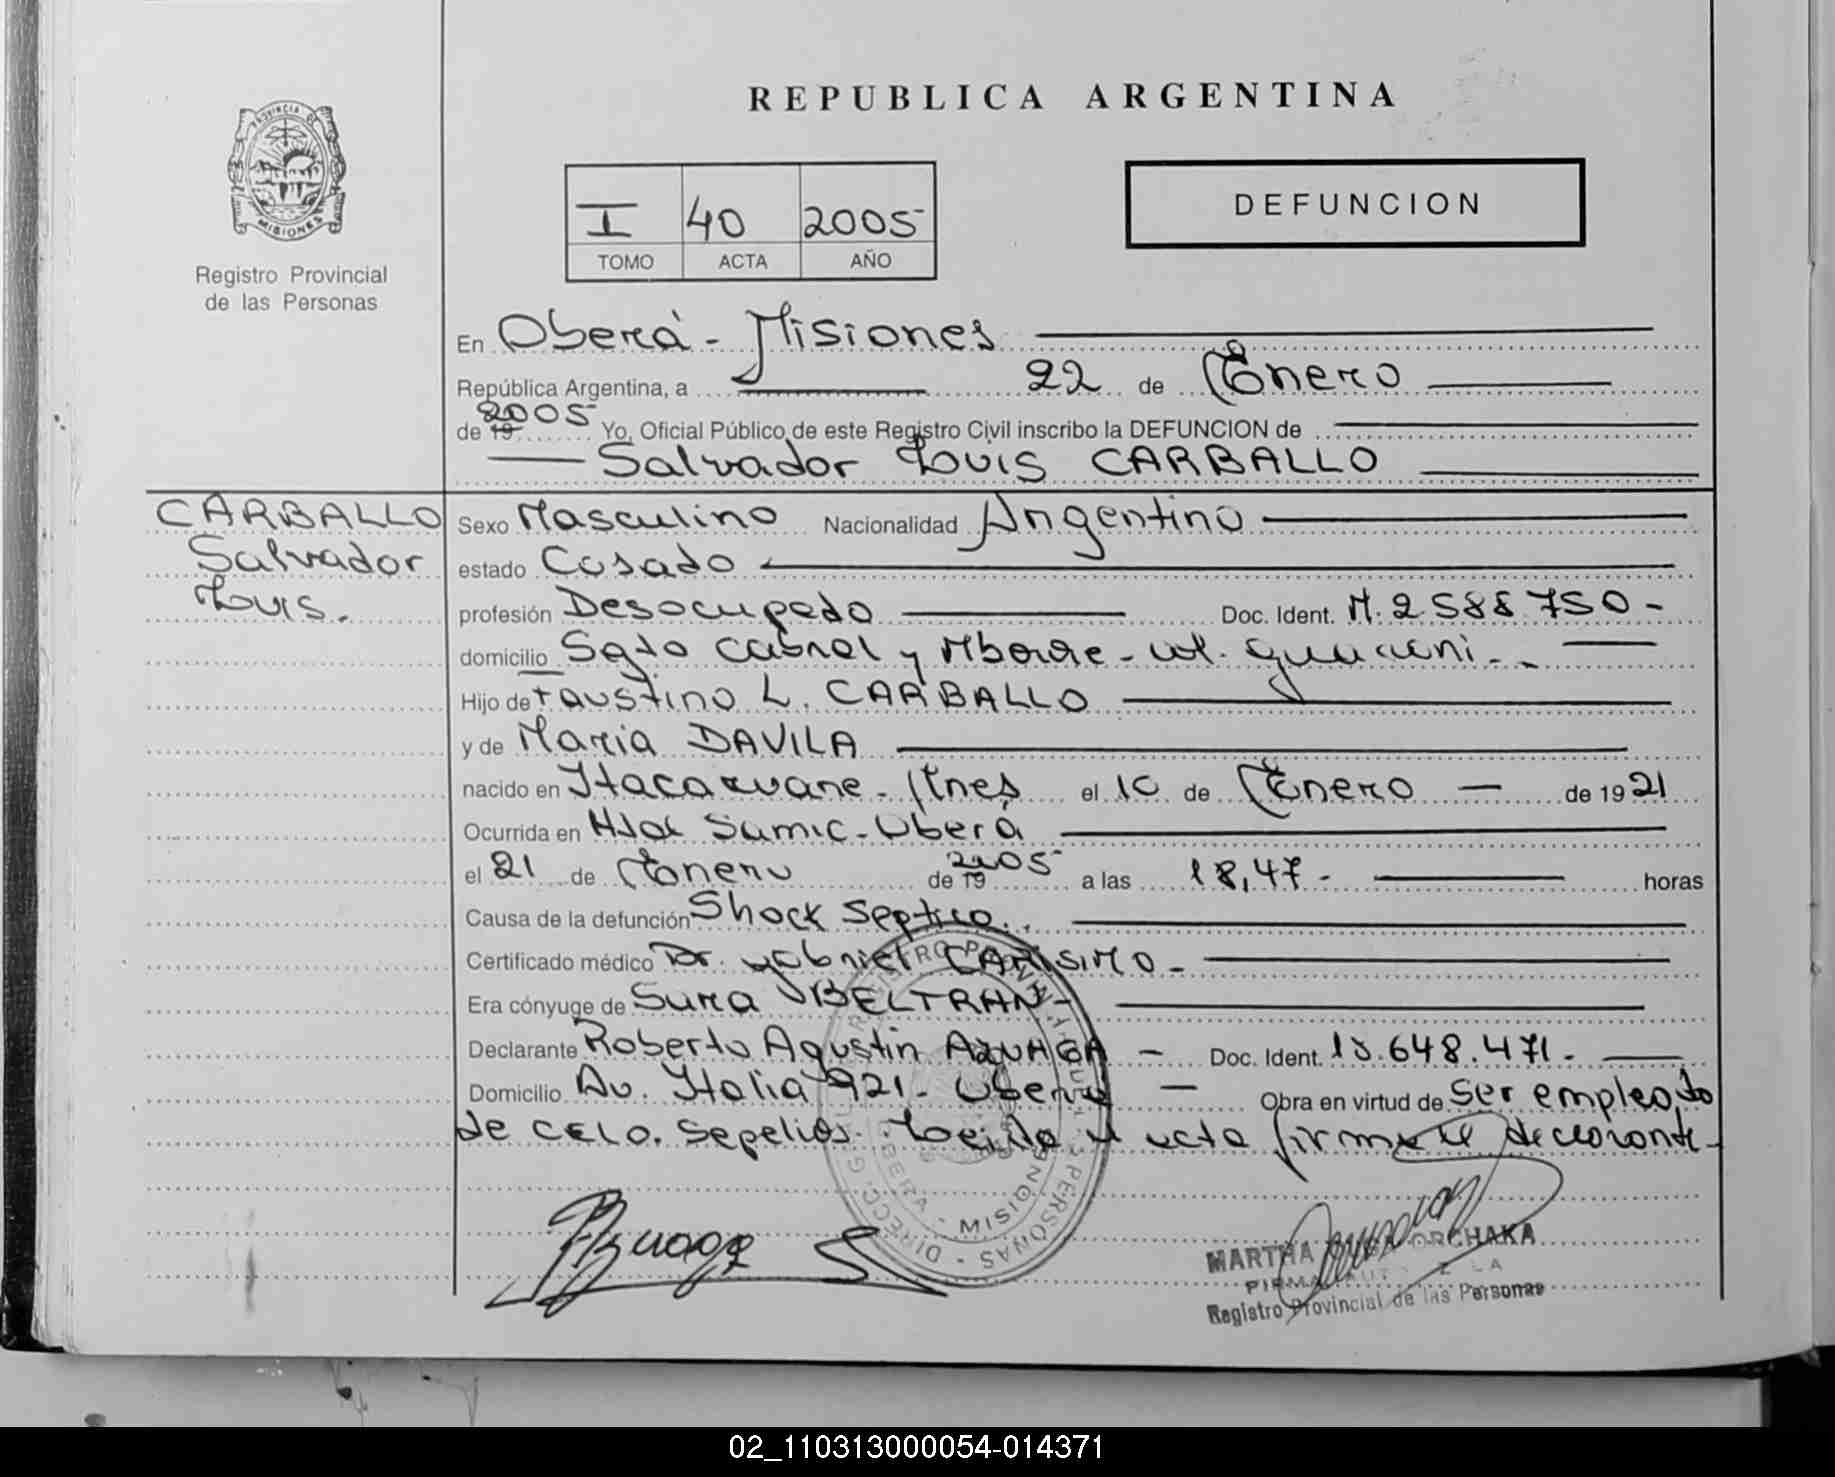 REPUBLICA ARGENTINA
PROVINCIA DE MISIONES
Registro Provincial
de las Personas
I 40 2005
TOMO ACTA AÑO
DEFUNCION
En Oberá - Misiones
República Argentina, a 22 de Enero
de 19 2005 Yo, Oficial Público de este Registro Civil inscribo la DEFUNCION de
Salvador Louis CARBALLO
CARBALLO
Salvador
Louis.
Sexo Masculino Nacionalidad Argentino
estado Casado
profesión Desocupado Doc. Ident. M. 2588750 -
domicilio Sgto Cabral y - guarani -
Hijo de Faustino L. CARBALLO
y de Maria DAVILA
nacido en Itacaruare - Mnes el 10 de Enero de 1921
Ocurrida en Samic - Oberá
el 21 de Enero de 19 2005 a las 18,47 - horas
Causa de la defunción Shock Septico.
Certificado médico Dr. Gabriel CARISIMO -
Era cónyuge de Sara BELTRAN -
Declarante Roberto Agustin AZUAGA - Doc. Ident. 648.471 -
Domicilio Av. Italia 921 - Obera - Obra en virtud de ser empleado
de CELO. Sepelios. Leida el acta firma el declarante -
DIRECC. G REGISTRO PROVINCIAL PERSONAS - OBERA - MISIONES
MARTHA ORCHAKA
FIRMA AUT
Registro Provincial de las Personas
02_110313000054-014371